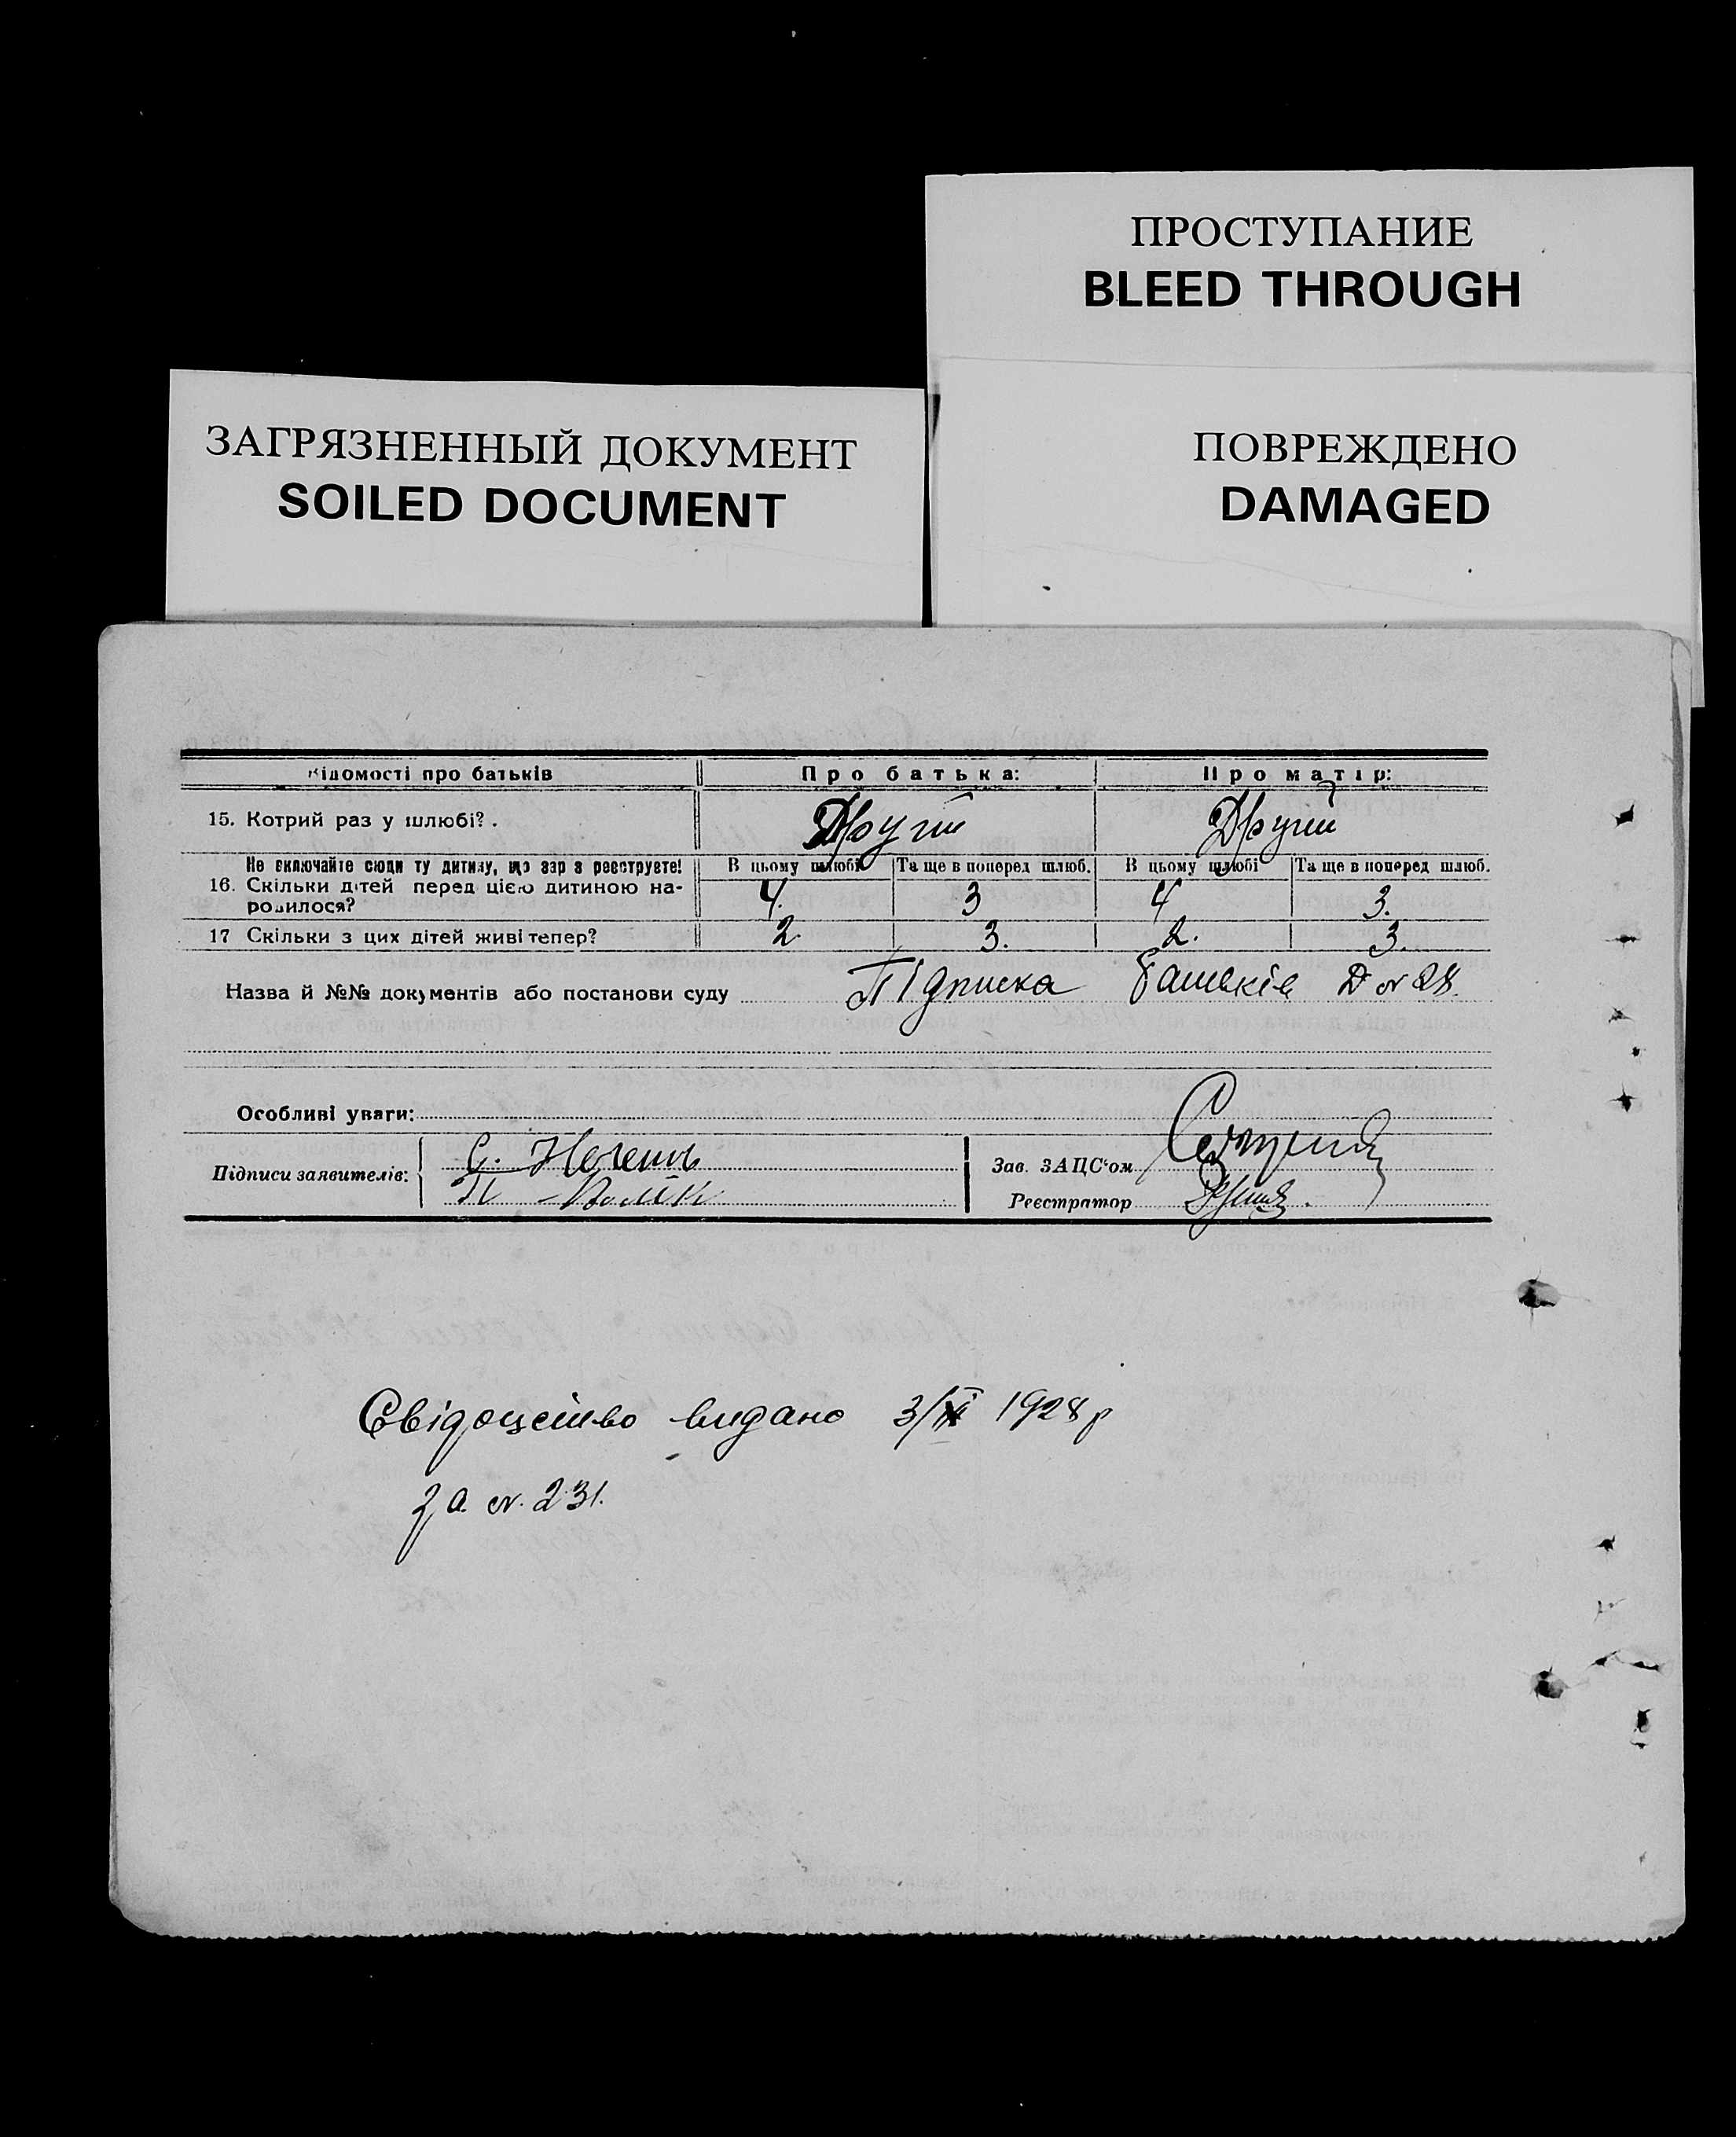 ПРОСТУПАНИЕ
BLEED THROUGH
ЗАГРЯЗНЕННЫЙ ДОКУМЕНТ
SOILED DOCUMENT
ПОВРЕЖДЕНО
DAMAGED
Відомості про батьків Про батька: Про матір:
15. Котрий раз у шлюбі? . Другий Другий
Не включайте сюди ту дитину, що зараз реєструєте! В цьому шлюбі Та ще в поперед шлюб. В цьому шлюбі Та ще в поперед шлюб.
16. Скільки дітей перед цією дитиною на- 4. 3 4 3.
родилося?
17 Скільки з цих дітей живі тепер? 2 3. 2. 3.
Назва й №№ документів або постанови суду Підписка батьків Д № 28.
Особливі уваги:
Підписи заявителів: С.
Зав. ЗАЦС'ом
Реєстратор
Свідоцтво видано 3/ 1928 р
за № 231.